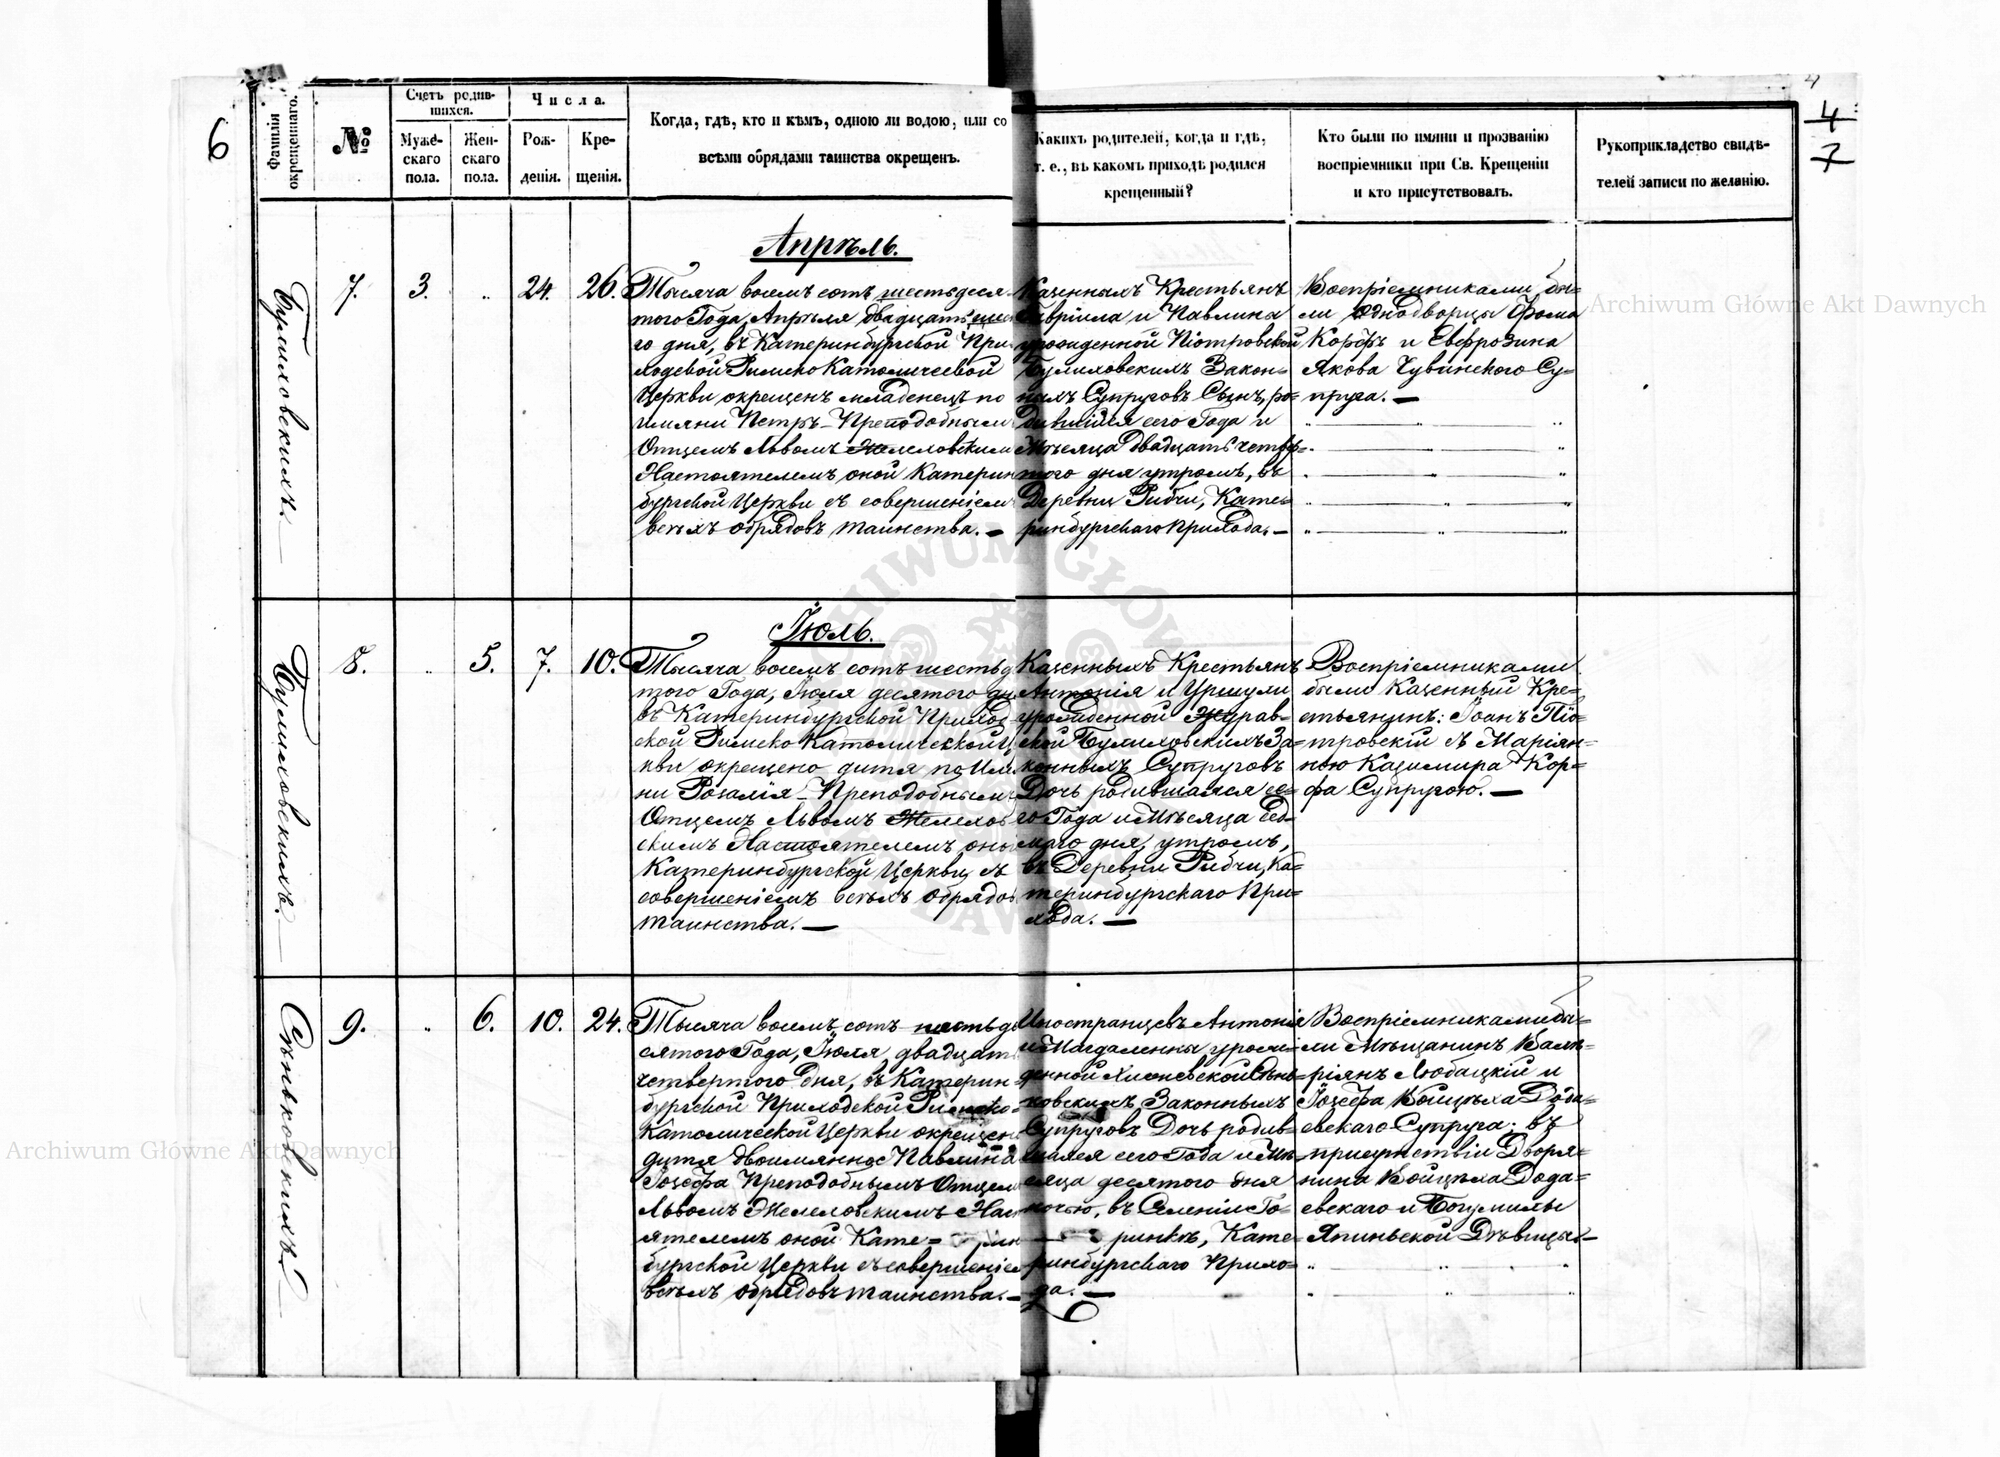 6
4
4
7
Фамилія окрещеннаго.
№
Счетъ родив-
шихся.
Муже-
скаго
пола.
Жен-
скаго
пола.
Числа.
Рож-
денія.
Кре-
щенія.
Когда, гдѣ, кто и кѣмъ, одною ли водою, или со
всѣми обрядами таинства окрещенъ.
Какихъ родителей, когда и гдѣ,
т. е., въ какомъ приходѣ родился
крещенный?
Кто были по имяни и прозванію
воспріемники при Св. Крещеніи
и кто присутствовалъ.
Рукоприкладство свидѣ-
телей записи по желанію.
Булиховскихъ.
7.
3.
24.
26.
Апрѣль.
Тысяча восемъ сотъ шестьдеся
того Года, Апрѣля двадцать шес
го дня, въ Катеринбургской При
ходской Римско Католической
Церкви окрещенъ младенецъ по
имяни Петръ - Преподобнымъ
Отцемъ Львомъ
Настоятелемъ оной Катерин
бургской Церкви съ совершеніемъ
всѣхъ обрядовъ таинства. —
Казенныхъ Крестьянъ
Гавріила и Павлина
урожденной Піотровской
Булиховскихъ Закон-
ныхъ Супруговъ Сынъ, ро-
дившійся сего Года и
Мѣсяца двадцать четвер-
того дня утромъ, въ
Деревни Рибчи, Кате-
ринбургскаго Прихода. —
Воспріемниками бы-
ли однодворцы Фома
Корфъ и Евфрозина
Якова Чувинского Су-
пруга. —
Булиховскихъ.
8.
5.
7.
10.
Іюль.
Тысяча восемъ сотъ шестьд
того Года, Іюля десятого дн
въ Катеринбургской Приход
ской Римско Католической Ц
кви окрещено дитя по Имя
ни Розалія - Преподобнымъ
Отцемъ Львомъ
скимъ Настоятелемъ оной
Катеринбургской Церкви съ
совершеніемъ всѣхъ обрядов
таинства. —
Казенныхъ Крестьянъ
Антонія и Уршули
урожденной Журав-
ской Булиховскихъ За-
конныхъ Супруговъ
Дочь родившаяся се-
го Года и Мѣсяца сед-
маго дня, утромъ,
въ Деревни Рибчи, Ка-
теринбургскаго При-
хода. —
Воспріемниками
были Казенный Кре-
стьянинъ: Іоанъ Піо-
тровскій съ Маріян-
ною Казимира Кор-
фа Супругою. —
Сѣньковскихъ.
9.
6.
10.
24.
Тысяча восемъ сотъ шестьде
сятого Года, Іюля двадцать
четвертого Дня, въ Катерин
бургской Приходской Римско-
Католической Церкви окрещено
дитя двоимянное Павлина
Іозефа Преподобнымъ Отцемъ
Львомъ Нас
ятелемъ оной Кате- рин
бургской Церкви съ совершеніем
всѣхъ обрядовъ таинства. —
Иностранцевъ Антонія
и Магдалены урож-
денной Сѣнь-
ковскихъ Законныхъ
Супруговъ Дочь родив-
шаяся сего Года и Мѣ-
сяца десятого дня
ночью, въ Селеніи Го-
ринкѣ, Кате-
ринбургскаго Прихо-
да. —
Воспріемниками бы-
ли Мѣщанинъ Валѣ-
ріянъ Любацкій и
Іозефа Войцѣха Дода-
евскаго Супруга; въ
присутствіи Дворя-
нина Войцѣха Дода-
евскаго и Богумилы
Япиньской Дѣвицы. —
Archiwum Główne Akt Dawnych
Archiwum Główne Akt Dawnych